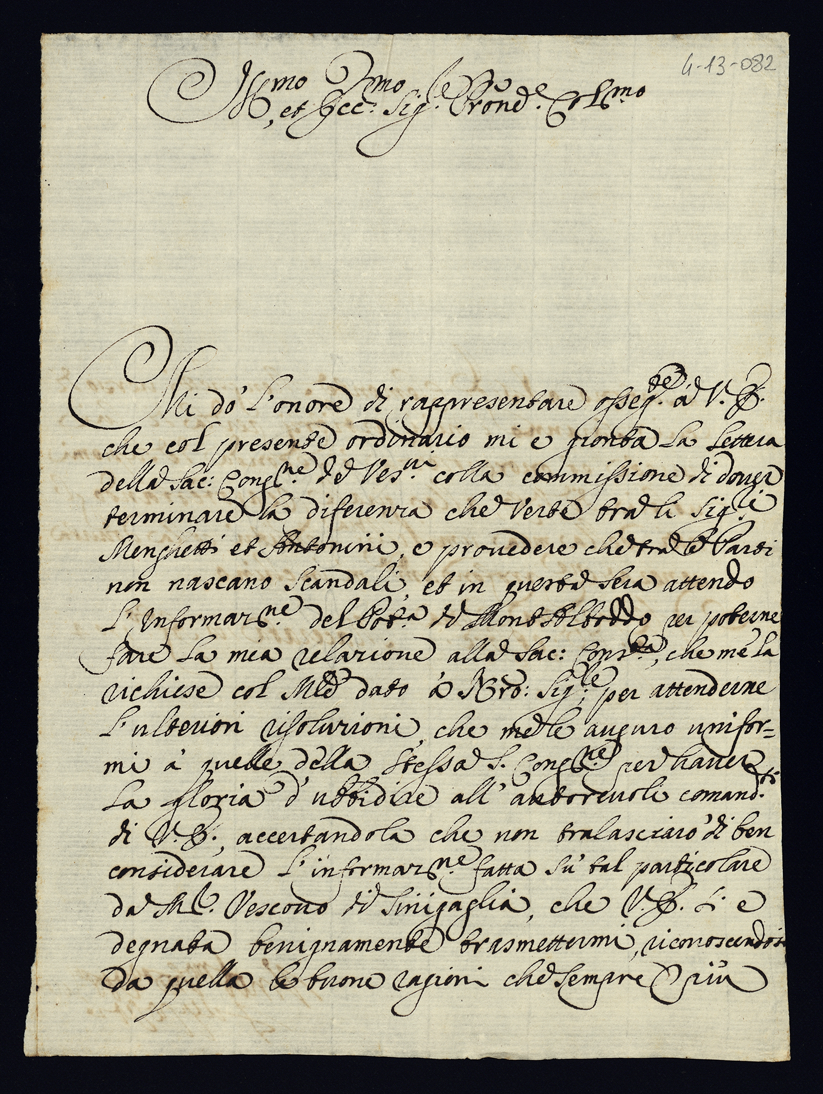 4-13-082
Ill.mo et Ecc.mo Sig.re Prōne Col.mo
Mi dò l'onore di rappresentare osseq.te à V. E.
che col presente ordinario mi e gionta la lettera
della Sac: Cong.ne de Ves.vi colla commissione di dover
terminare la diferenza che verte tra li Sig.ri
Menghetti et Antonini, e provedere che trà le Parti
non nascano scandali, et in questa sera attendo
l'informaz.ne del Pod.a di Mont'Alboddo per poterne
fare la mia relazione alla Sac: , che me la
richiese col dato à per attenderne
l'ulteriori risoluzioni, che me le auguro unifor=
mi à quelle della stessa S. Cong.ne per haver
la gloria d'ubbidire all'autorevoli comand.ti
di V. E., accertandola che non tralasciarò di ben
considerare l'informaz.ne fatta sù tal particolare
da M.r Vescovo di Sinigaglia, che V. E. s'è
degnata benignamente trasmettermi, riconoscendosi
da quella le buone ragioni che sempre più